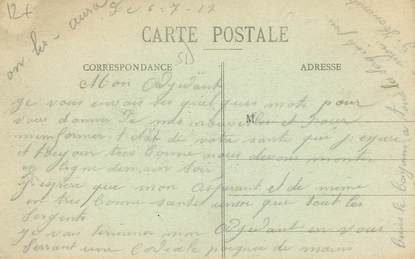 Le 6-7-17
CARTE POSTALE
CORRESPONDANCE
ADRESSE
M
Mon Adjudant
Je vous envois ces quelques mots pour
vous donner de mes nouvelles et pour
m'informer l'état de votre santé que j'espère
et toujour très bonne nous devons monter
en ligne demain soir
J'espère que mon Aspirant et de même
en très bonne santé ainsi que tout les
Sergents
Je vais terminer mon Adjudant en vous
Serrant une Cordiale pognée de mains